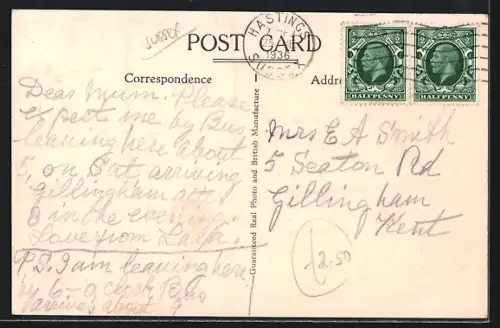 SUSSEX
POST CARD
HASTINGS
1936
SUSSEX
HALF PENNY
HALF PENNY
Correspondence
Addre
Dear Mum. Please
expect me by Bus
leaving here about
5, on Sat arriving
Gillingham at
8 in the evening.
Love from
P.S. I am leaving here
by 6 - o clock Bus
arrives about 9
Guaranteed Real Photo and British Manufacture
Mrs E A Smith
5 Seaton Rd
Gillingham
Kent
£2.50